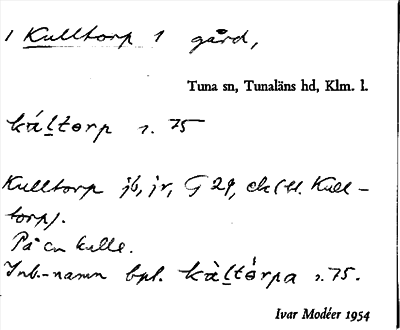 1 Kulltorp 1 gård,
Tuna sn, Tunaläns hd, Klm. l.
kál̲tɵrp s. 75
Kulltorp jb, jr, G 29, ek (H. Kull-
torp).
På en kulle.
Inb.-namn bpl. kàl̲tɵ́rpa s. 75.
Ivar Modéer 1954